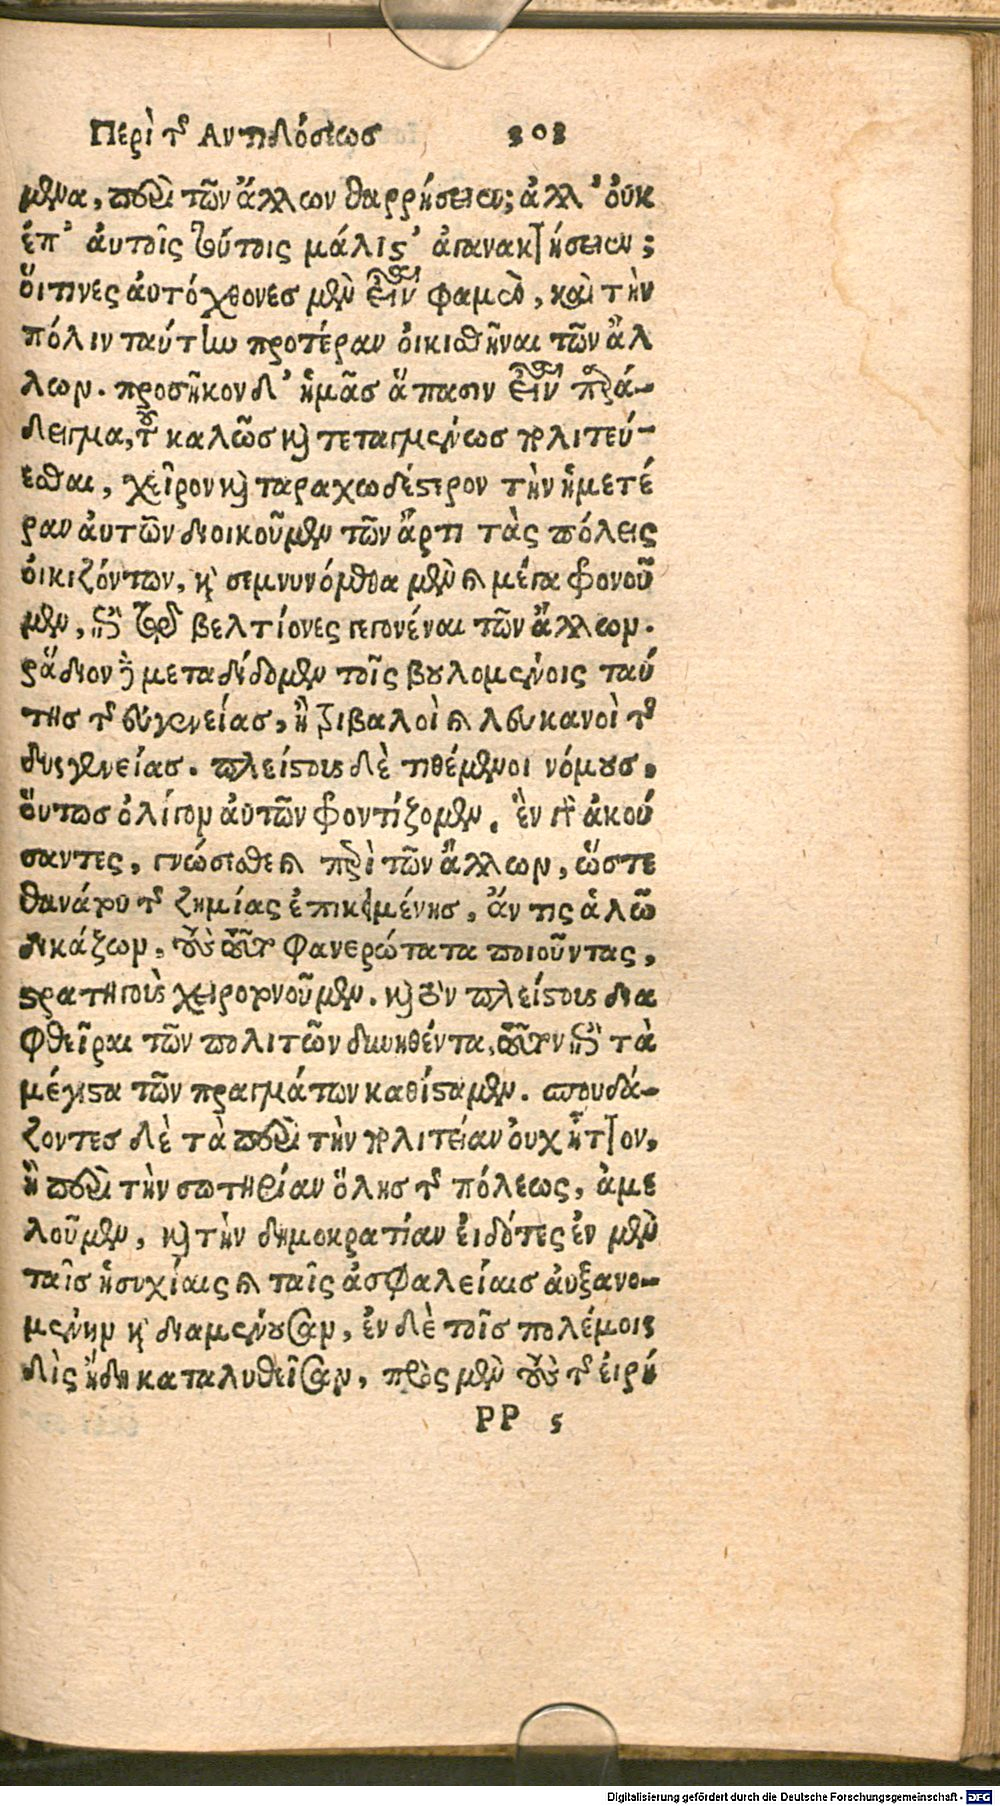 Περὶ τῆς Αντιδόσεως 303
μενα, περὶ τῶν ἄλλων θαρρήσειεν; ἀλλ' ὀυκ
ἐπ' ἀυτοῖς τούτοις μάλιστ' ἀγανακτήσειεν;
ὅιτινες ἀυτόχθονες μὲν εἶναι φαμὲν, καὶ τὴν
πόλιν ταύτην προτέραν ὀικισθῆναι τῶν ἄλ
λων. προσῆκον δ' ἡμᾶς ἅπασιν εἶναι παρά-
δειγμα, τοῦ καλῶς καὶ τεταγμένως πολιτεύ-
εσθαι, χεῖρον καὶ ταραχωδέστερον τὴν ἡμετέ
ραν ἀυτῶν διοικοῦμεν τῶν ἄρτι τὰς πόλεις
ὀικιζόντων, καὶ σεμνυνόμεθα μὲν καὶ μέγα φρονοῦ
μεν, ἐπὶ τῷ βελτίονες γεγονέναι τῶν ἄλλων.
ῥᾴδιον δὲ μεταδίδομεν τοῖς βουλομένοις ταύ
της τῆς ἐυγενείας, ἢ τριβαλοὶ καὶ λευκανοὶ τῆς
δυσγενείας. πλείστους δὲ τιθέμενοι νόμους,
ὅυτως ὀλίγον ἀυτῶν φροντίζομεν. ἓν γὰρ ἀκού
σαντες, γνώσεσθε καὶ περὶ τῶν ἄλλων, ὥστε
θανάτου τῆς ζημίας ἐπικειμένης, ἄν τις ἁλῶ
δικάζων, τοὺς τοῦτο φανερώτατα ποιοῦντας,
στρατηγοὺς χειροτονοῦμεν. καὶ τὸν πλείστους δια
φθεῖραι τῶν πολιτῶν δυνηθέντα, τοῦτον ἐπὶ τὰ
μέγιστα τῶν πραγμάτων καθίσταμεν. σπουδά-
ζοντες δὲ τὰ περὶ τὴν πολιτείαν ὀυχ ἧττον,
ἢ περὶ τὴν σωτηρίαν ὅλης τῆς πόλεως, ἀμε
λοῦμεν, καὶ τὴν δημοκρατίαν ἐιδότες ἐν μὲν
ταῖς ἡσυχίαις καὶ ταῖς ἀσφαλείαις ἀυξανο-
μένην καὶ διαμένουσαν, ἐν δὲ τοῖς πολέμοις
δὶς ἤδη καταλυθεῖσαν, πρὸς μὲν τοὺς τῆς ἐιρή
PP 5
Digitalisierung gefördert durch die Deutsche Forschungsgemeinschaft - DFG